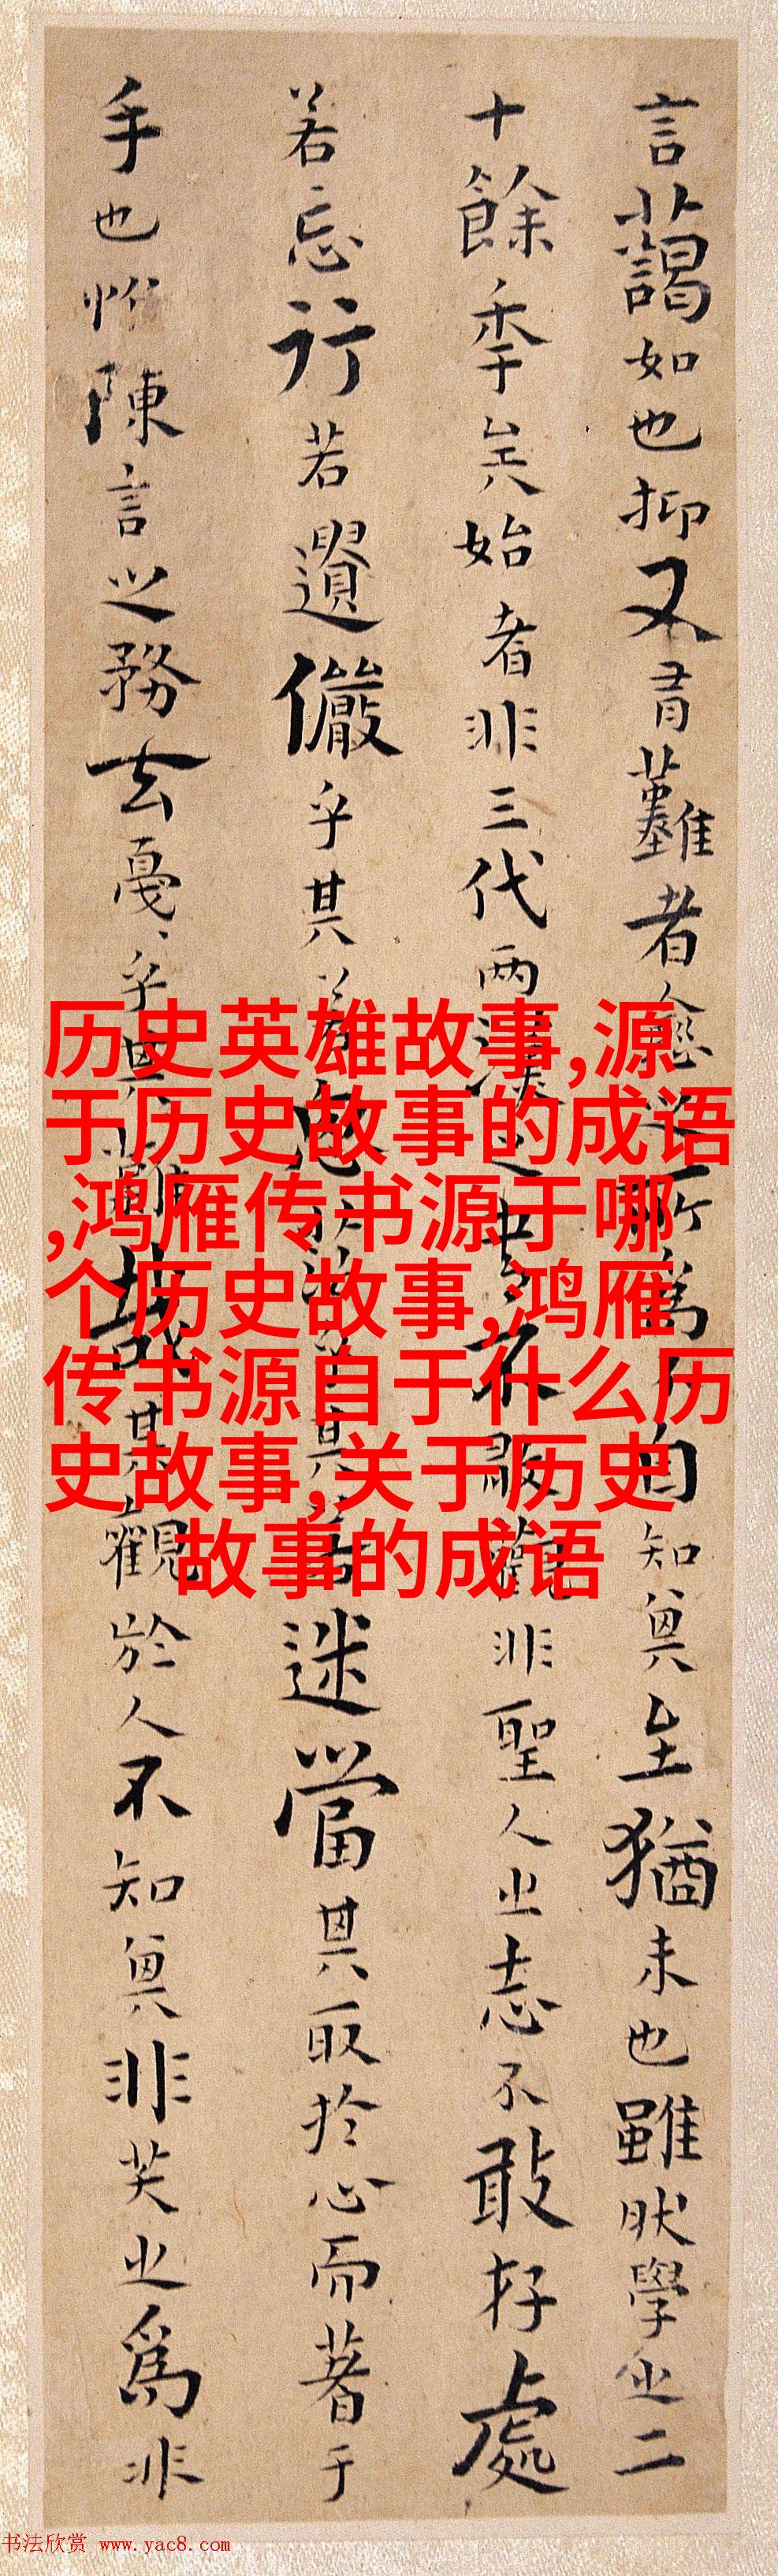 言藹如也抑又有難者愈之所為不自知其至猶未也雖然學之二
十餘年矣始者非三代兩漢之書不敢觀非聖人之志不敢存處
若忘行若遺儼乎其若思茫乎其若迷當其取於心而著于
手也惟陳言之務去戛戛乎其難哉其觀於人不知其非笑之為非
历史英雄故事,源
于历史故事的成语
,鸿雁传书源于哪
个历史故事,鸿雁
传书源自于什么历
史故事,关于历史
故事的成语
书法欣赏 www.yac8.com